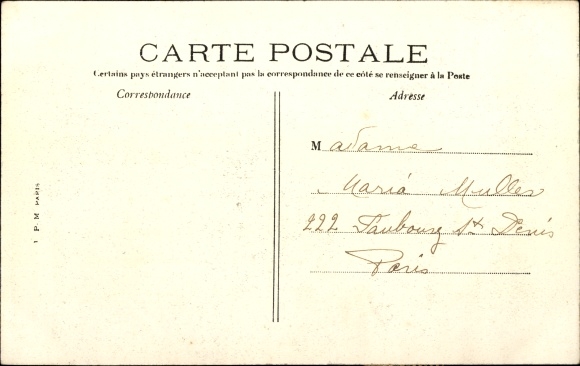 CARTE POSTALE
Certains pays étrangers n'acceptant pas la correspondance de ce côté se renseigner à la Poste
Correspondance
Adresse
Madame
Mariá Muller
222 Faubourg St Denis
Paris
1 P. M PARIS